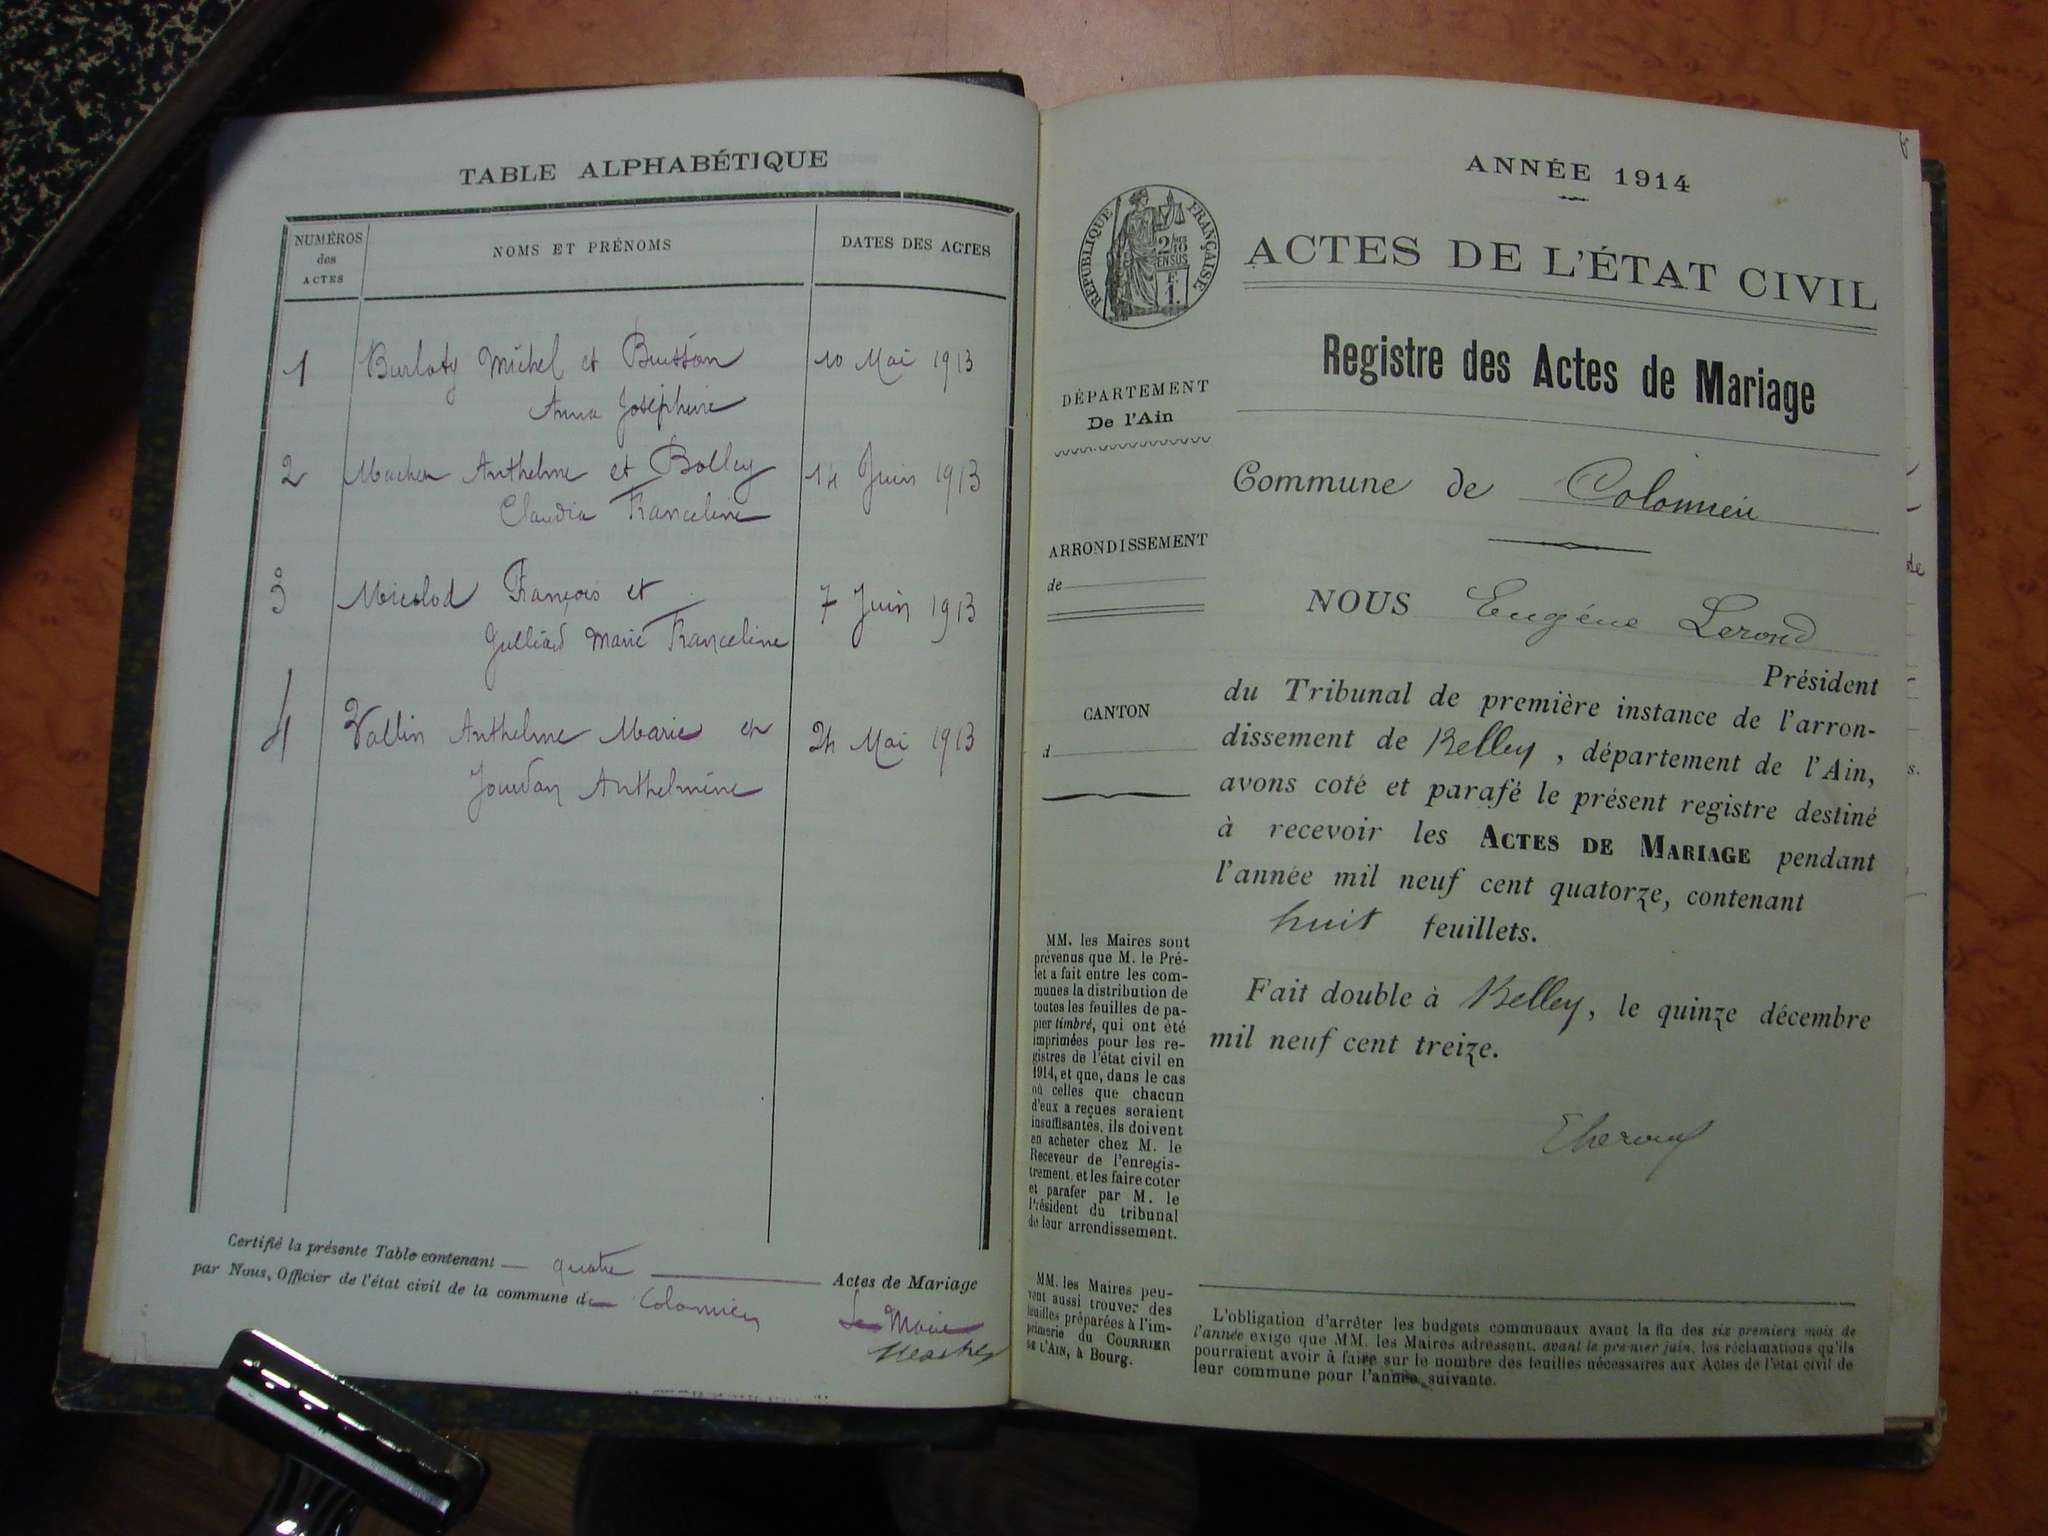 TABLE ALPHABÉTIQUE
NUMÉROS des ACTES
NOMS ET PRÉNOMS
DATES DES ACTES
1 Burloty Michel et Buisson 10 Mai 1913
Anna Joséphine
2 Anthelme et Bolley 14 Juin 1913
Claudia Franceline
3 Micolod François et 7 Juin 1913
Julliard Marie Franceline
4 Vallin Anthelme Marie et 24 Mai 1913
Jourdan Anthelmine
Certifié la présente Table contenant quatre Actes de Mariage
par Nous, Officier de l'état civil de la commune de Colomieu
Le Maire
ANNÉE 1914
RÉPUBLIQUE FRANÇAISE
2/10 EN SUS
F. 1.
ACTES DE L'ÉTAT CIVIL
Registre des Actes de Mariage
DÉPARTEMENT
De l'Ain
Commune de Colomieu
ARRONDISSEMENT
de
NOUS Eugène Lerond
Président
du Tribunal de première instance de l'arron-
dissement de Belley, département de l'Ain,
avons coté et parafé le présent registre destiné
à recevoir les ACTES DE MARIAGE pendant
l'année mil neuf cent quatorze, contenant
huit feuillets.
Fait double à Belley, le quinze décembre
mil neuf cent treize.
CANTON
d
MM. les Maires sont
prévenus que M. le Pré-
fet a fait entre les com-
munes la distribution de
toutes les feuilles de pa-
pier timbré, qui ont été
imprimées pour les re-
gistres de l'état civil en
1914, et que, dans le cas
où celles que chacun
d'eux a reçues seraient
insuffisantes, ils doivent
en acheter chez M. le
Receveur de l'enregis-
trement, et les faire coter
et parafer par M. le
Président du tribunal
de leur arrondissement.
MM. les Maires peu-
vent aussi trouver des
feuilles préparées à l'im-
primerie du COURRIER
DE L'AIN, à Bourg.
L'obligation d'arrêter les budgets communaux avant la fin des six premiers mois de
l'année exige que MM. les Maires adressent, avant le premier juin, les réclamations qu'ils
pourraient avoir à faire sur le nombre des feuilles nécessaires aux Actes de l'état civil de
leur commune pour l'année suivante.